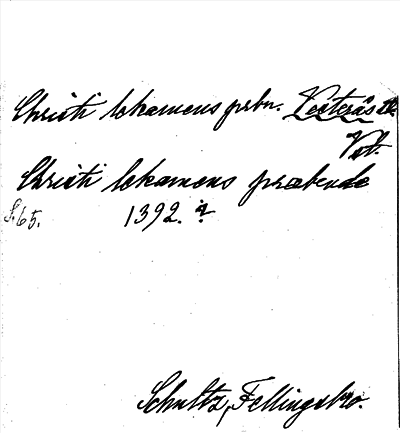 Christi lekamens prbn. Västerås
Vst.
Christi lekamens præbende
S. 65. 1392.
Schultz, Fellingsbro.